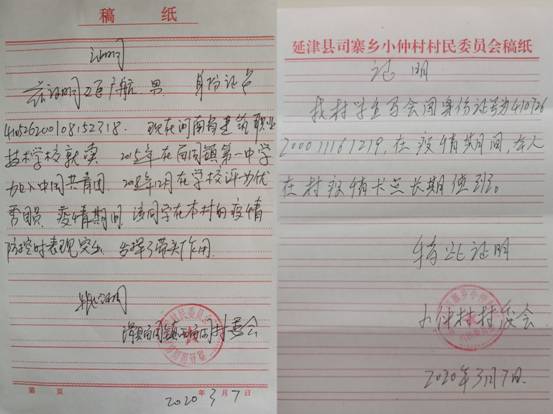 稿 纸
证明
兹证明 男. 身份证号
410526200108152318. 现在河南省建筑职业
技术学校就读. 2015年在 第一中学
加入中国共青团. 年12月在学校评为优
秀团员. 疫情期间 该同学在本村的疫情
防控时表现突出 发挥了带头作用.
特此证明
村委会
第 页
2020年3月7日
延津县司寨乡小仲村村民委员会稿纸
证 明
我村学生 身份证号410726
200011161219, 在疫情期间, 本人
在村疫情卡点长期值班.
特此证明
小仲村村委会
2020年3月7日.